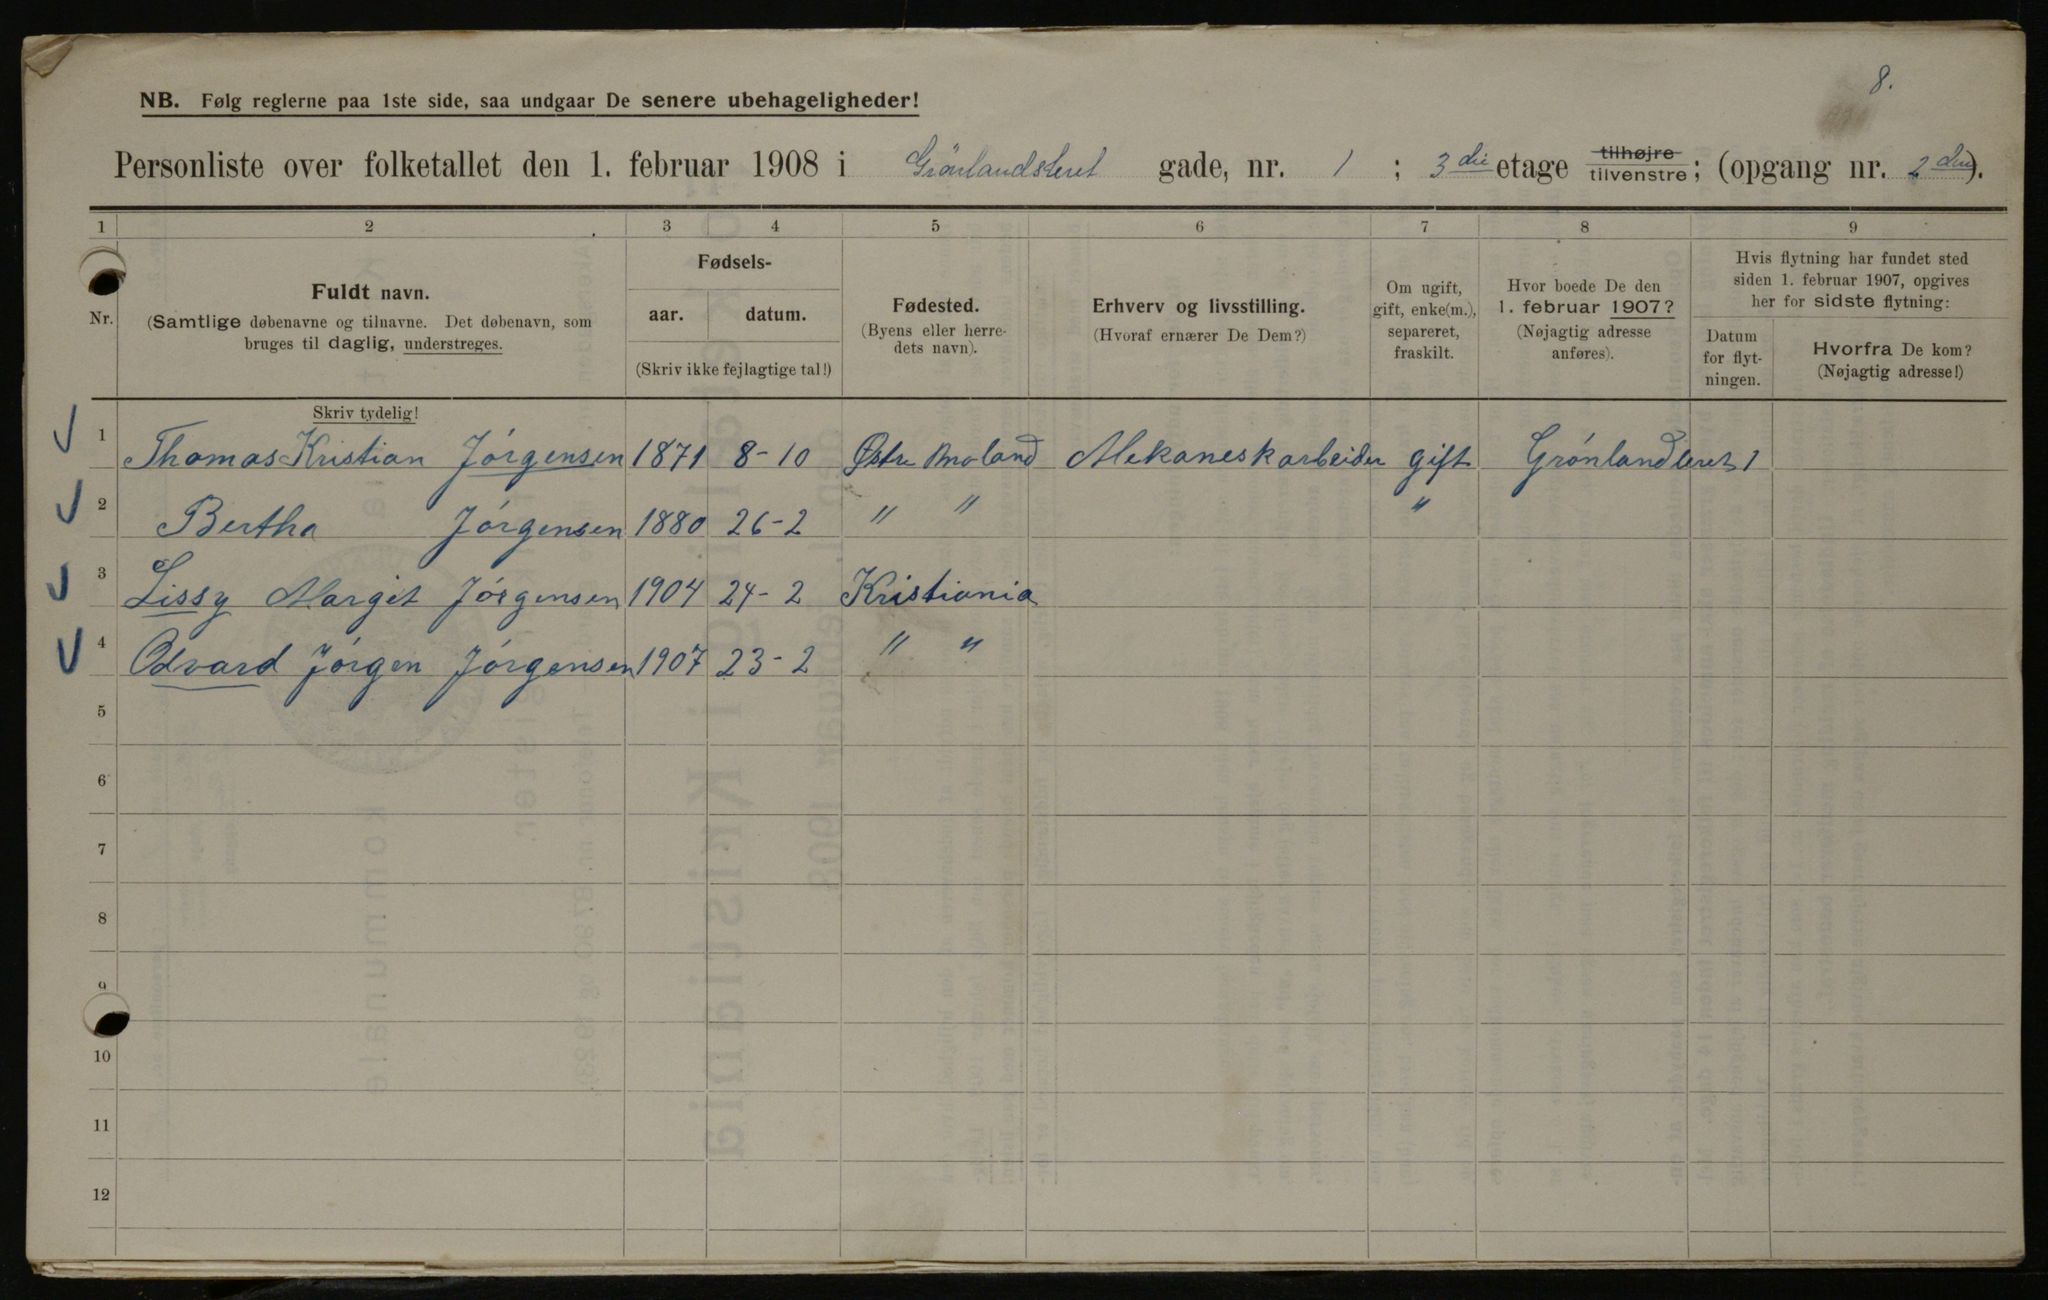 8.
NB. Følg reglerne paa 1ste side, saa undgaar De senere ubehageligheder!
Personliste over folketallet den 1. februar 1908 i Grönlandsleret gade, nr. 1 ; 3die etage tilhøjre tilvenstre; (opgang nr. 2den).
1 2 3 4 5 6 7 8 9
Nr.
Fuldt navn.
(Samtlige døbenavne og tilnavne. Det døbenavn, som
bruges til daglig, understreges.
Skriv tydelig!
Fødsels-
aar. datum.
(Skriv ikke fejlagtige tal!)
Fødested.
(Byens eller herre-
dets navn).
Erhverv og livsstilling.
(Hvoraf ernærer De Dem?)
Om ugift,
gift, enke(m.),
separeret,
fraskilt.
Hvor boede De den
1. februar 1907?
(Nøjagtig adresse
anføres).
Hvis flytning har fundet sted
siden 1. februar 1907, opgives
her for sidste flytning:
Datum
for flyt-
ningen.
Hvorfra De kom?
(Nøjagtig adresse!)
1 Thomas Kristian Jórgensen 1871 8-10 Østre Moland Mekaneskarbeider gift Grónlandleret 1
2 Bertha Jórgensen 1880 26-2 " " "
3 Lissy Margit Jórgensen 1904 24-2 Kristiania
4 Odvard Jórgen Jórgensen 1907 23-2 " "
5
6
7
8
9
10
11
12